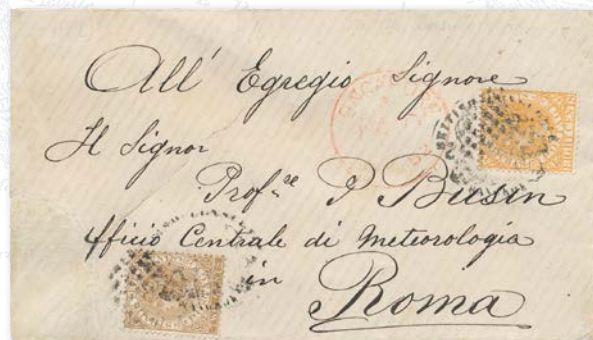 All' Egregio Signore
Il Signor
Profre P Busin
Ufficio Centrale di Meteorologia
in
Roma
BRITISH